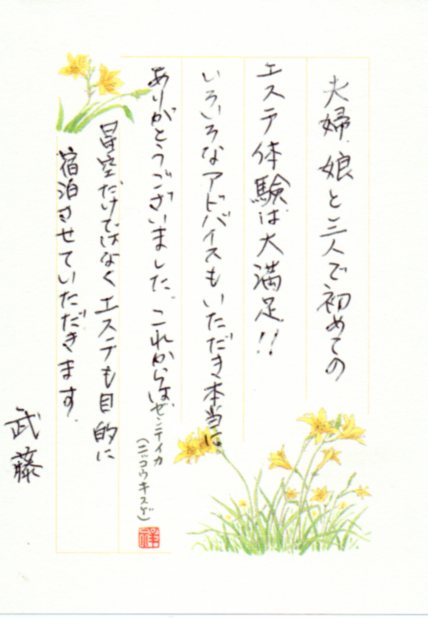 夫婦、娘と三人で初めての
エステ体験は大満足!!
いろいろなアドバイスもいただき本当に
ありがとうございました。これからは
ゼンテイカ
(ニッコウキスゲ)
星空だけではなくエステも目的に
宿泊させていただきます。
武藤